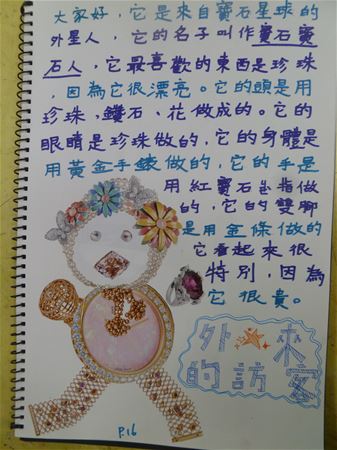 大家好，它是來自寶石星球的
外星人，它的名子叫作寶石寶
石人，它最喜歡的東西是珍珠
，因為它很漂亮。它的頭是用
珍珠、鑽石、花做成的。它的
眼睛是珍珠做的，它的身體是
用黃金手錶做的，它的手是
用紅寶石戒指做
的，它的雙腳
是用金條做的
它看起來很
特別，因為
它很貴。
外來
的訪客
P.16